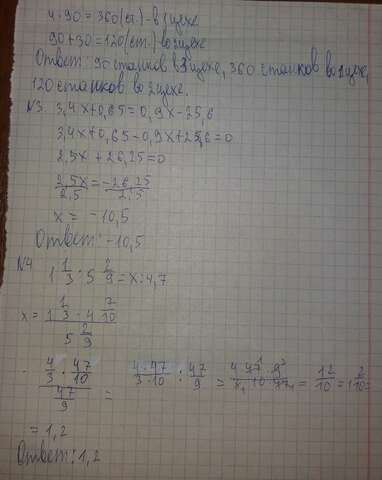 4·90=360(ст.)-в 1 цехе
90+30=120(ст.) во 2 цехе
Ответ: 90 станков в 3 цехе, 360 станков во 1 цехе,
120 станков во 2 цехе.
№3 3,4x+0,65=0,9x-25,6
3,4x+0,65-0,9x+25,6=0
2,5x+26,25=0
2,5x/2,5=-26,25/2,5
x= -10,5
Ответ: -10,5
№4 1 1/3:5 2/9=x:4,7
x= 1 1/3·4 7/10 / 5 2/9
4/3·47/10 / 47/9 = 4·47/3·10 : 47/9 = 4·47·9/3·10·47 = 12/10 = 1 2/10 =
=1,2
Ответ: 1,2